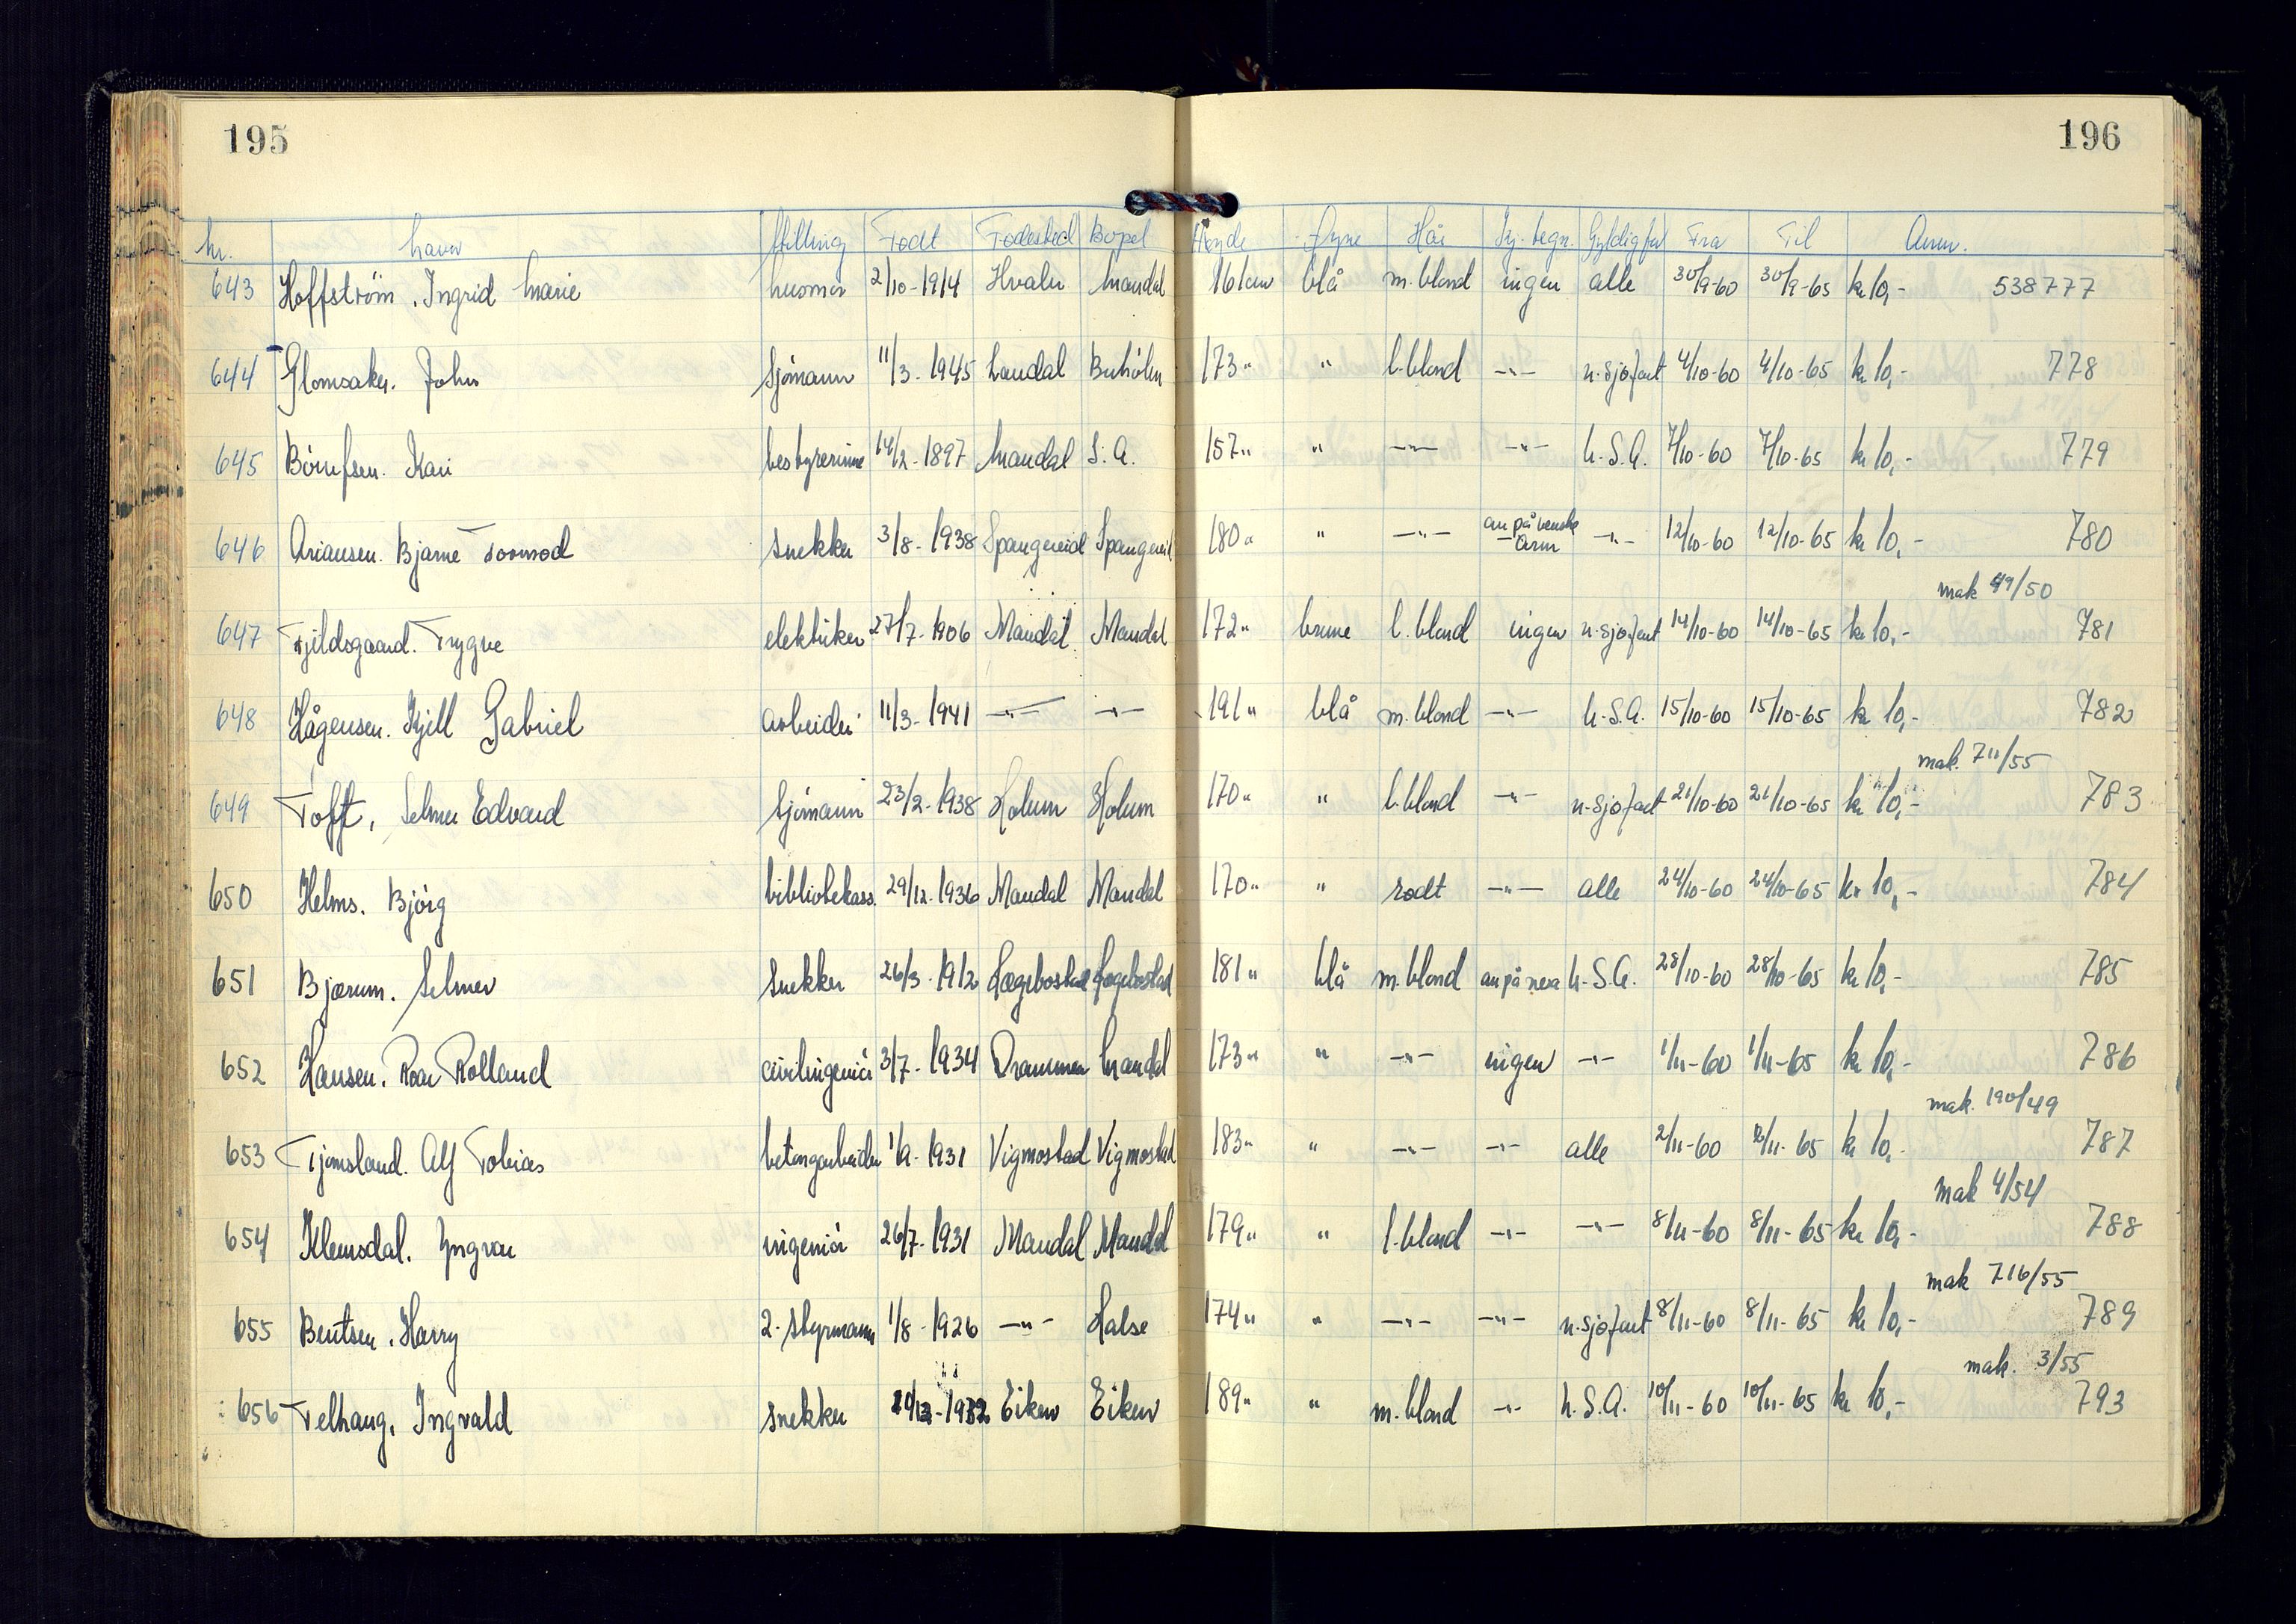 195
196
Nr. Navn Stilling Født Fødested Bopel Høyde Øyne Hår Sy. tegn. Gyldig for Fra Til Anm.
643 Hoffström, Ingrid Marie husmor 2/10-1914 Hvaler Mandal 161cm blå m. blond ingen alle 30/9-60 30/9-65 kr 10,- 538777
644 Glomsaker. John Sjömann 11/3-1945 Laudal Buhölen 173" " l. blond -"- u-sjøfart 4/10-60 4/10-65 kr 10,- 778
645 Kari bestyrerinne 14/2-1897 Mandal S.A. 157" " -"- -"- U.S.A. 7/10-60 7/10-65 kr 10,- 779
646 Ariansen. Bjarne Tormod Snekker 3/8-1938 Spangereid Spangereid 180" " -"- arr på venstre arm -"- 12/10-60 12/10-65 kr 10,- 780
mak 49/50
647 Fjeldsgaard. Trygve elektriker 27/7-1906 Mandal Mandal 172" brune l. blond ingen u-sjøfart 14/10-60 14/10-65 kr 10,- 781
648 Hågensen. Kjell Gabriel arbeider 11/3-1941 -"- -"- 191" blå m. blond -"- U.S.A. 15/10-60 15/10-65 kr 10,- 782
mak. 711/55
649 Tofft, Selmer Edvard Sjömann 23/2-1938 Holum Holum 170" " l. blond -"- u-sjøfart 21/10-60 21/10-65 kr 10,- 783
650 Helms. Björg bibliotekass. 29/12-1936 Mandal Mandal 170" " rødt -"- alle 24/10-60 24/10-65 kr 10,- 784
651 Bjærum. Selmer Snekker 26/3-1912 Hægebostad Hægebostad 181" blå m. blond arr på nesa U.S.A. 28/10-60 28/10-65 kr 10,- 785
652 Hansen. Roar Rolland civilingeniör 3/7-1934 Drammen Mandal 173" " -"- ingen -"- 1/11-60 1/11-65 kr 10,- 786
mak. 190/49
653 Tjomsland. Alf Tobias betongarbeider 1/9-1931 Vigmostad Vigmostad 183" " -"- -"- alle 2/11-60 2/11-65 kr 10,- 787
mak 4/54
654 Klemsdal. Yngvar ingeniör 26/7-1931 Mandal Mandal 179" " l. blond -"- -"- 8/11-60 8/11-65 kr 10,- 788
mak 716/55
655 Bentsen, Harry 2. Styrmann 1/8-1926 -"- Halse 174" " -"- -"- u-sjøfart 8/11-60 8/11-65 kr 10,- 789
mak. 3/55
656 Telhaug, Ingvald snekker Eiken Eiken 189" " m. blond -"- U.S.A. 10/11-60 10/11-65 kr 10,- 793